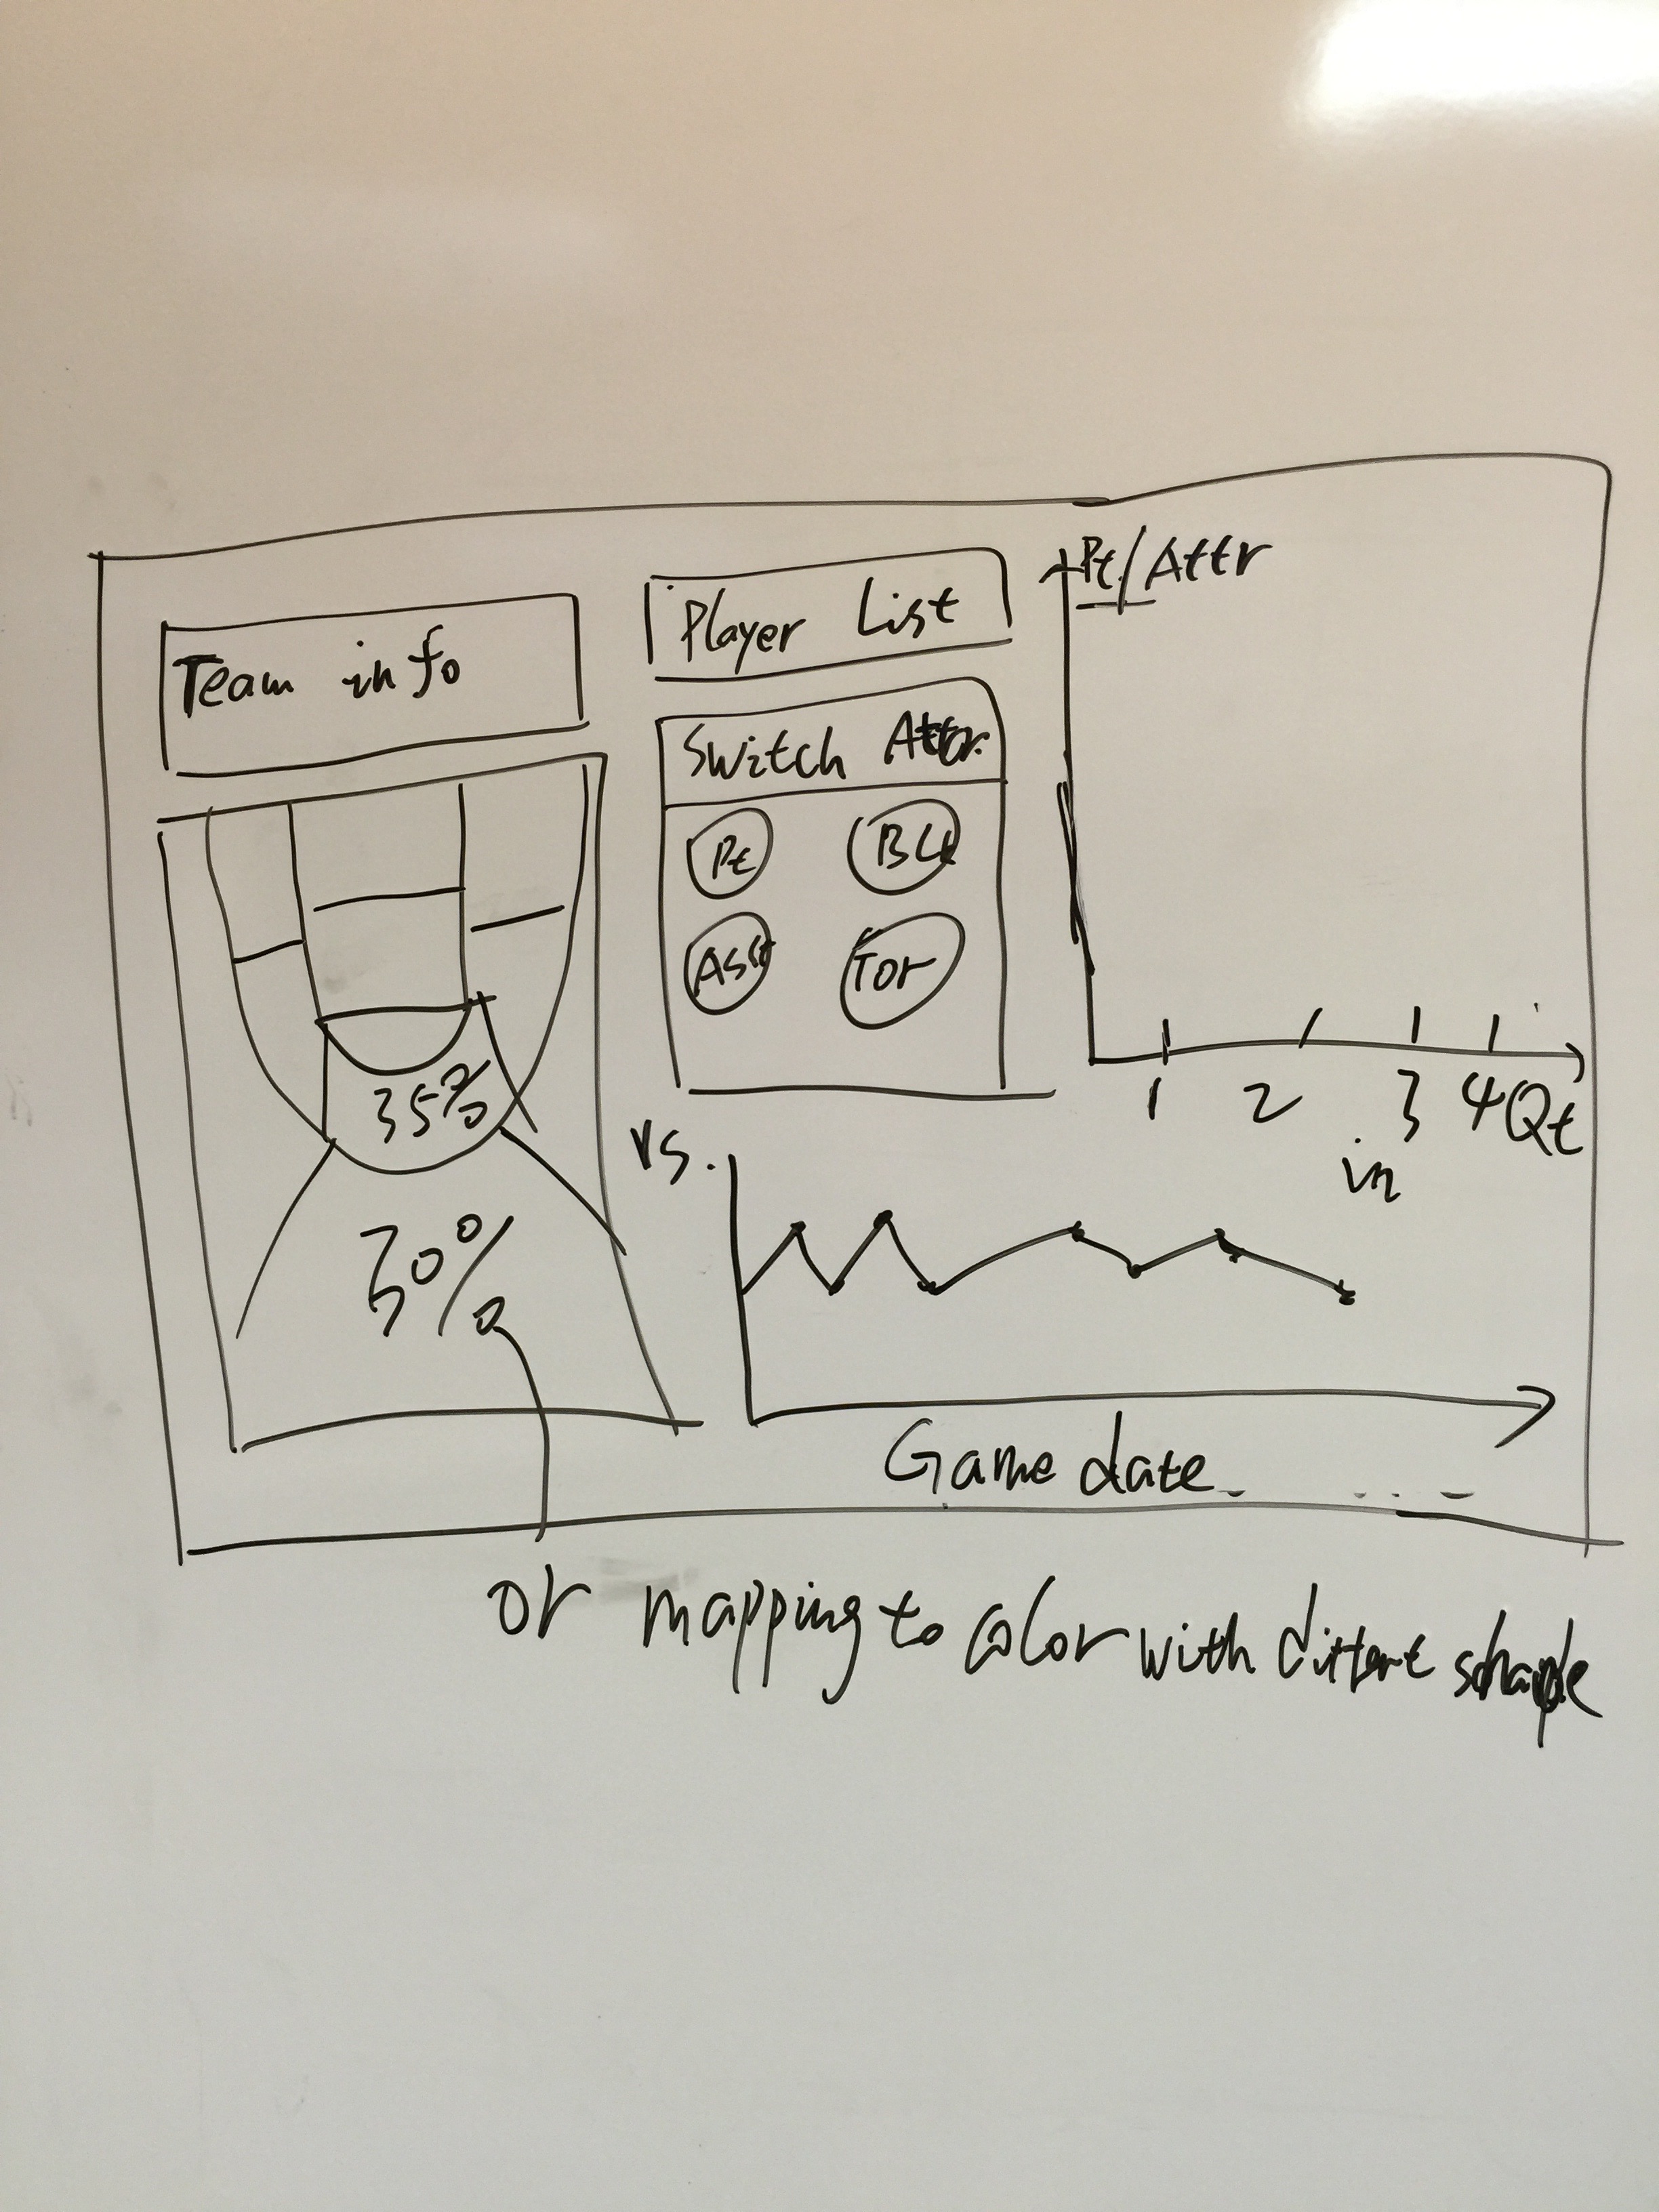 Team info
Player List
Switch Attr.
Pt
Ass
Tor
Pt/Attr
1 2 3 4 Qt
in
35%
30%
vs.
Game date
or mapping to color with different schaple